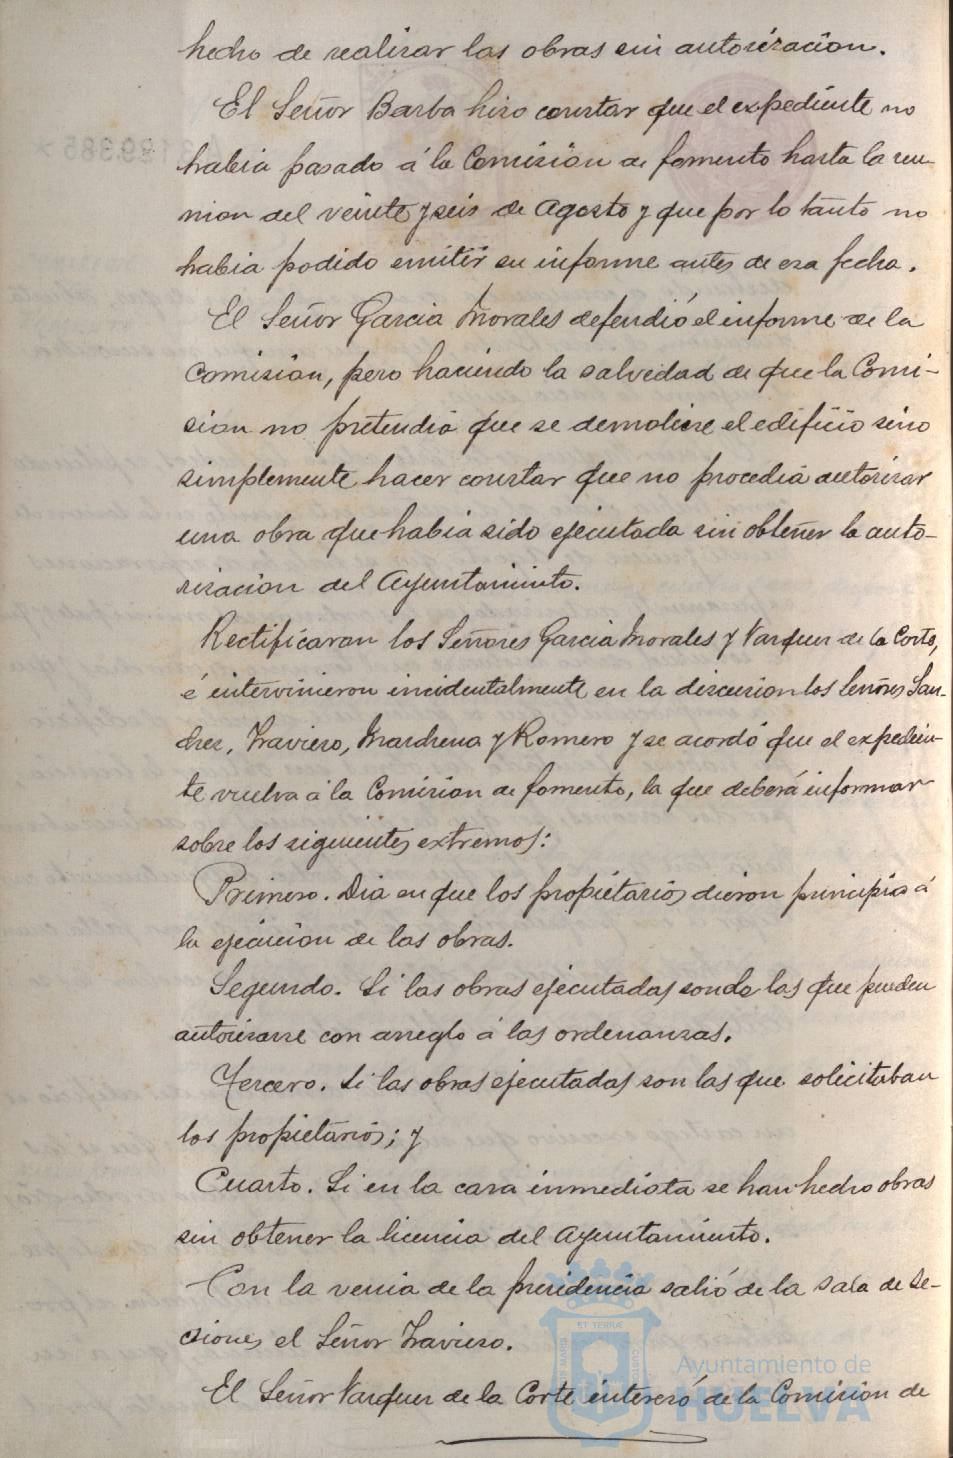 hecho de realizar las obras sin autorizacion.
El Señor Barba hizo constar que el expediente no
habia pasado á la Comision de fomento hasta la reu-
nion del veinte y seis de Agosto y que por lo tanto no
habia podido emitir su informe antes de esa fecha.
El Señor Garcia Morales defendió el informe de la
Comision, pero haciendo la salvedad de que la Comi-
sion no pretendia que se demoliese el edificio sino
simplemente hacer constar que no procedia autorizar
una obra que habia sido ejecutada sin obtener la auto-
rizacion del Ayuntamiento.
Rectificaron los Señores Garcia Morales y Vazquez de la Corte,
é intervinieron incidentalmente en la discusion los Señores San-
chez, Traviero, Marchena y Romero y se acordó que el expedien-
te vuelva á la Comision de fomento, la que deberá informar
sobre los siguientes extremos:
Primero. Dia en que los propietarios dieron principio á
la ejecucion de las obras.
Segundo. Si las obras ejecutadas son de las que pueden
autorizarse con arreglo á las ordenanzas.
Tercero. Si las obras ejecutadas son las que solicitaban
los propietarios; y
Cuarto. Si en la casa inmediata se han hecho obras
sin obtener la licencia del Ayuntamiento.
Con la venia de la presidencia salió de la sala de se-
siones el Señor Traviero.
El Señor Vazquez de la Corte interesó de la Comision de
ET TERRÆ
MARIS
CUSTOS
Ayuntamiento de
HUELVA